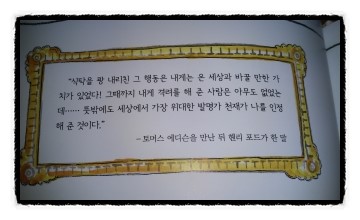 “식탁을 쾅 내리친 그 행동은 내게는 온 세상과 바꿀 만한 가
치가 있었다! 그때까지 내게 격려를 해 준 사람은 아무도 없었는
데…… 뜻밖에도 세상에서 가장 위대한 발명가 천재가 나를 인정
해 준 것이다.”
– 토머스 에디슨을 만난 뒤 헨리 포드가 한 말